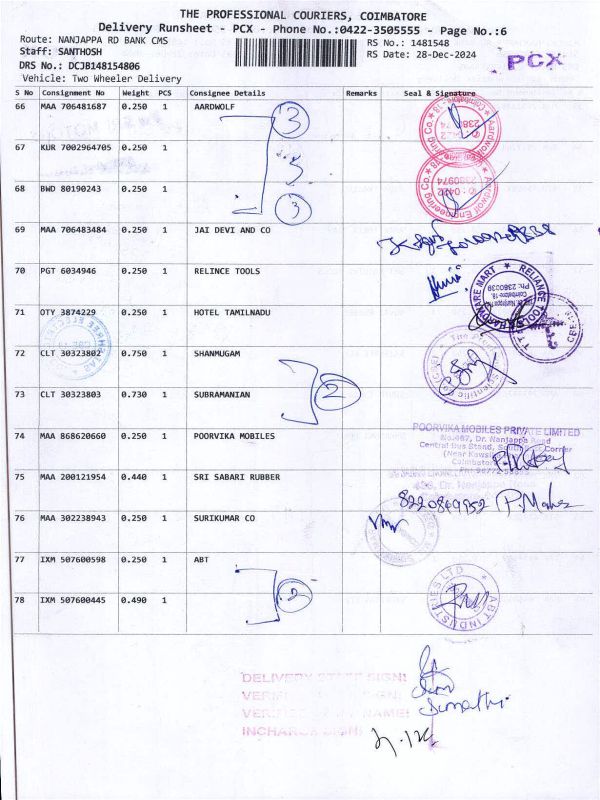 THE PROFESSIONAL COURIERS, COIMBATORE
Delivery Runsheet - PCX - Phone No.:0422-3505555 - Page No.:6
Route: NANJAPPA RD BANK CMS RS No.: 1481548
Staff: SANTHOSH RS Date: 28-Dec-2024 PCX
DRS No.: DCJB148154806
Vehicle: Two Wheeler Delivery
S No Consignment No Weight PCS Consignee Details Remarks Seal & Signature
66 MAA 706481687 0.250 1 AARDWOLF
3
67 KUR 7002964705 0.250 1
3
68 BWD 80190243 0.250 1
3
69 MAA 706483484 0.250 1 JAI DEVI AND CO
70 PGT 6034946 0.250 1 RELINCE TOOLS
RELIANCE TOOLS
HARDWARE MART
71 OTY 3874229 0.250 1 HOTEL TAMILNADU
72 CLT 30323802 0.750 1 SHANMUGAM
2
73 CLT 30323803 0.730 1 SUBRAMANIAN
74 MAA 868620660 0.250 1 POORVIKA MOBILES
POORVIKA MOBILES PRIVATE LIMITED
No:467, Dr. Nanjappa Road
Central Bus Stand, Corner
75 MAA 200121954 0.440 1 SRI SABARI RUBBER
8220849952
76 MAA 302238943 0.250 1 SURIKUMAR CO
77 IXM 507600598 0.250 1 ABT
2
78 IXM 507600445 0.490 1
ABT INDUSTRIES LTD
DELIVERY STAFF SIGN:
NAME:
INCHARGE SIGN: